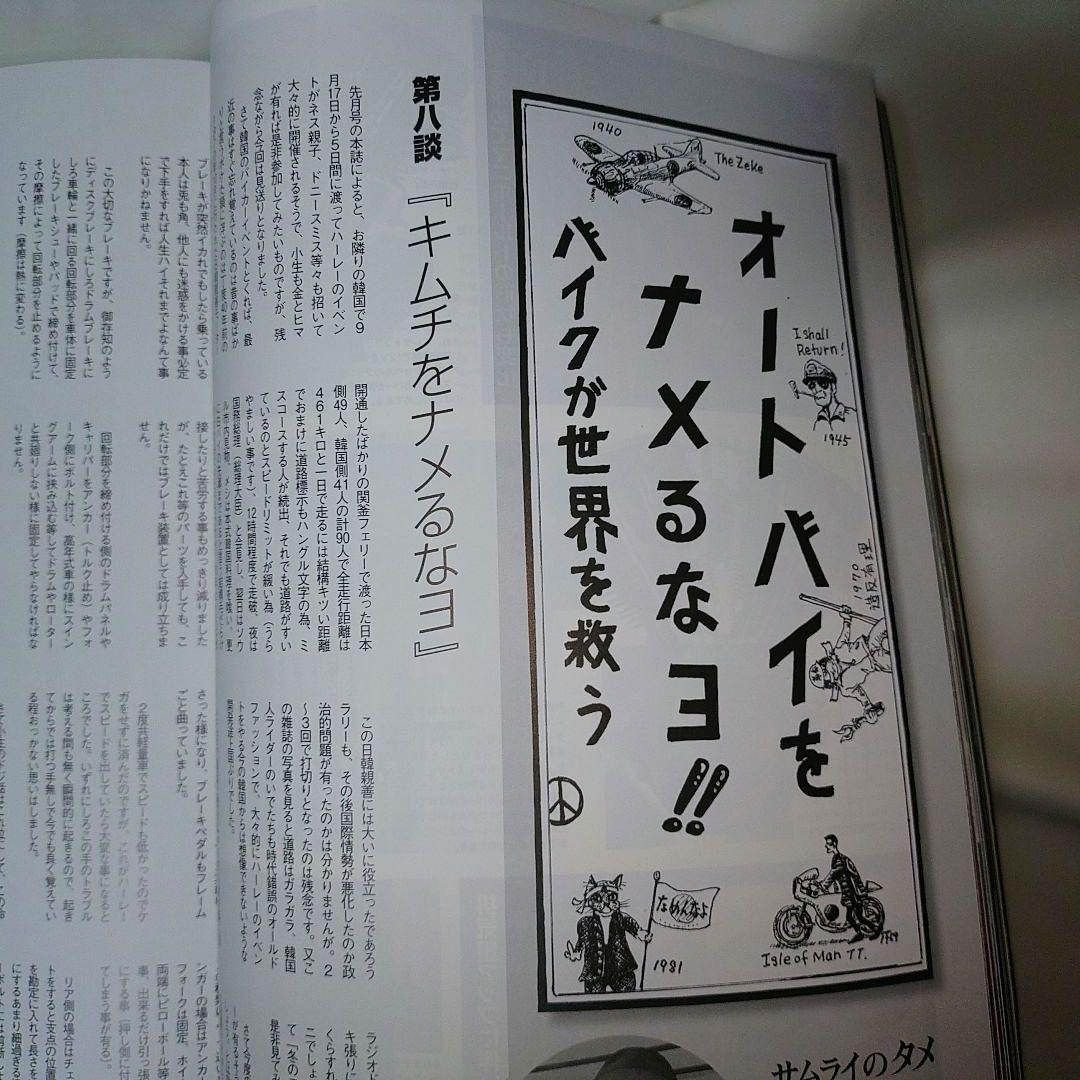 オートバイを
ナメるなヨ!!
バイクが世界を救う
1940
The Zeke
I shall
Return!
1945
1970
造反有理
なめんなよ
1981
Isle of Man TT.
サムライのタメ
第八談
『キムチをナメるなヨ』
先月号の本誌によると、お隣りの韓国で9
月17日から5日間に渡ってハーレーのイベン
トがネス親子、ドニースミス等々も招いて
大々的に開催されるそうで、小生も金とヒマ
が有れば是非参加してみたいものですが、残
念ながら今回は見送りとなりました。
さて韓国のバイカーイベントとくれば、最
近の事はすぐ忘れ覚えているのは昔の事ばか
開通したばかりの関釜フェリーで渡った日本
側49人、韓国側41人の計90人で全走行距離は
461キロと一日で走るには結構キツい距離
でおまけに道路標示もハングル文字の為、ミ
スコースする人が続出、それでも道路がすい
ているのとスピードリミットが緩い為（うら
やましい事です）、12時間程度で走破、夜は
国務総理（総理大臣）と会見し、翌日はソウ
この日韓親善には大いに役立ったであろう
ラリーも、その後国際情勢が悪化したのか政
治的問題が有ったのかは分かりませんが。2
～3回で打切りとなったのは残念です。又こ
の雑誌の写真を見ると道路はガラガラ、韓国
人ライダーのいでたちも時代錯誤のオールド
ファッションで、大々的にハーレーのイベン
トをやる今の韓国からは想像できないような
ラジオド
キ張りに
くらすれ
ニでしょ
て「冬の
是非見てみ
ブレーキが突然イカれでもしたら乗っている
本人は兎も角、他人にも迷惑をかける事必定
で下手をすれば人生ハイそれまでよなんて事
になりかねません。
この大切なブレーキですが、御存知のよう
にディスクブレーキにしろドラムブレーキに
しろ車輪と一緒に回る回転部分を車体に固定
したブレーキシューやパッドで締め付けて、
その摩擦によって回転部分を止めるように
なっています（摩擦は熱に変わる）。
接したりと苦労する事もめっきり減りました
が、たとえこれ等のパーツを入手しても、こ
れだけではブレーキ装置としては成り立ちま
せん。
回転部分を締め付ける側のドラムパネルや
キャリパーをアンカー（トルク止め）やフォ
ーク側にボルト付け、高年式車の様にスイン
グアームに挟み込む等してドラムやローター
と共廻りしない様に固定してやらなければな
りません。
さった様になり、ブレーキペダルもフレーム
ごと曲っていました。
2度共軽量車でスピードも低かったのでケ
ガをせずに済んだのですが、これがハーレー
でスピードを出していたら大変な事になると
ころでした。いずれにしろこの手のトラブル
は考える間も無く瞬間的に起きるので、起き
てからでは打つ手無しで今でも良く覚えてい
る程おっかない思いはしました。
ンガーの場合はアンカ
フォークは固定、ホイ
両端にピローボール等
事、出来るだけ引っ張
にする事（押し側に付
てしまう事が有る）。
リア側の場合はチェ
トをすると支点の位置
を勘定に入れて長さを
にするあまり細過ぎる